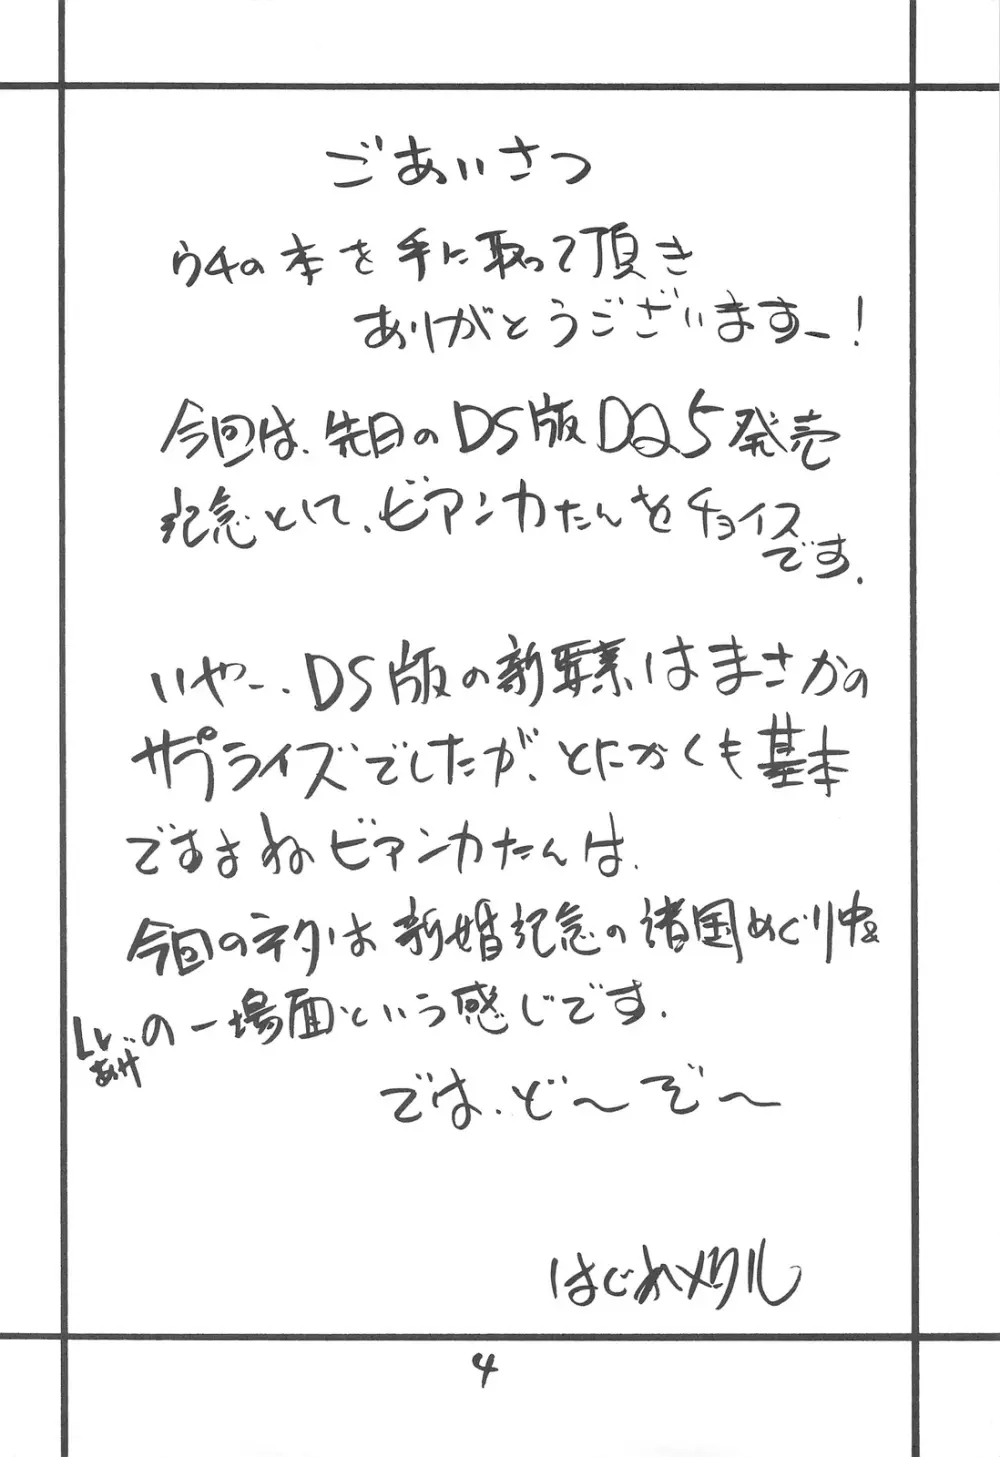 ごあいさつ
ウチの本を手に取って頂き
ありがとうございますー!
今回は、先日のDS版DQ5発売
記念として、ビアンカたんをチョイス
です.
いやー、DS版の新要素はまさかの
サプライズでしたが、とにかくも基本
ですよねビアンカたんは.
今回のネタは新婚記念の諸国めぐり中&
Lv
あげ
の一場面という感じです.
では、ど〜ぞ〜
はじめメタル
4